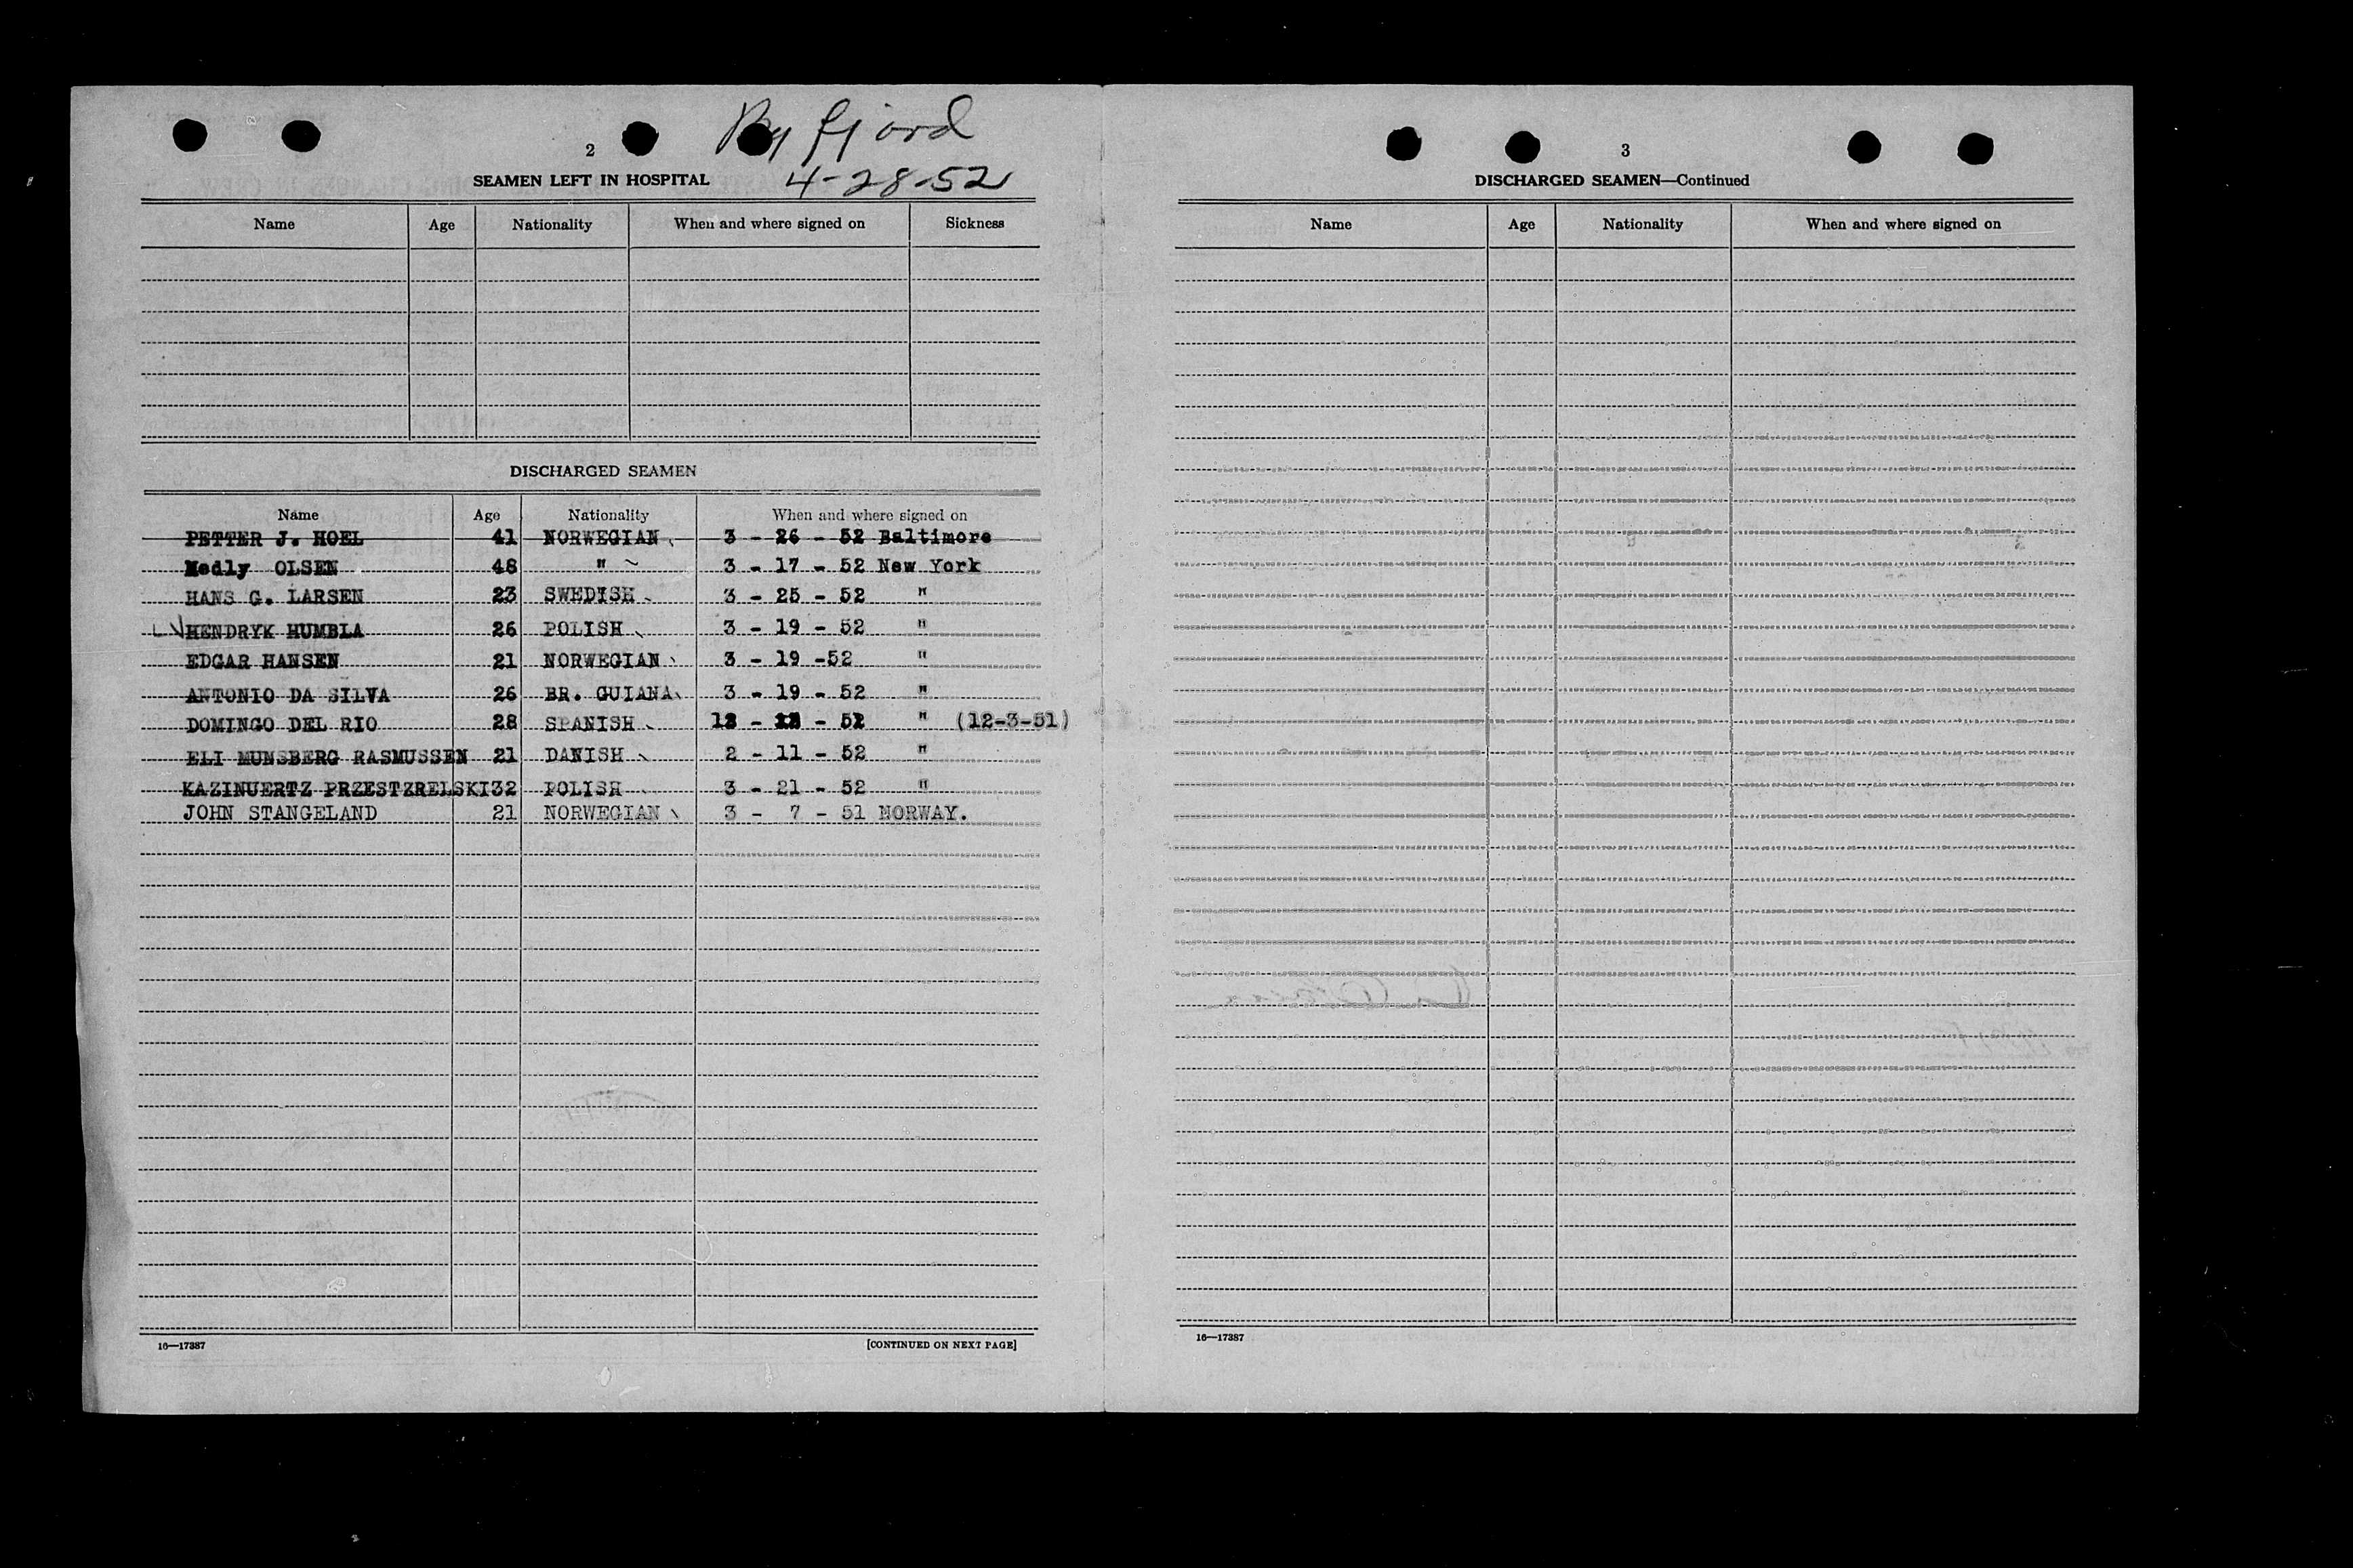 Byfjord
4-28-52
2
SEAMEN LEFT IN HOSPITAL
Name Age Nationality When and where signed on Sickness
DISCHARGED SEAMEN
Name Age Nationality When and where signed on
PETTER J. HOEL 41 NORWEGIAN 3 - 26 - 52 Baltimore
Medly OLSEN 48 " 3 - 17 - 52 New York
HANS G. LARSEN 23 SWEDISH 3 - 25 - 52 "
HENDRYK HUMBLA 26 POLISH 3 - 19 - 52 "
EDGAR HANSEN 21 NORWEGIAN 3 - 19 -52 "
ANTONIO DA SILVA 26 BR. GUIANA 3 - 19 - 52 "
DOMINGO DEL RIO 28 SPANISH " (12-3-51)
ELI MUNSBERG RASMUSSEN 21 DANISH 2 - 11 - 52 "
KAZINUERTZ PRZESTZRELSKI 32 POLISH 3 - 21 - 52 "
JOHN STANGELAND 21 NORWEGIAN 3 - 7 - 51 NORWAY.
16—17387 [CONTINUED ON NEXT PAGE]
3
DISCHARGED SEAMEN—Continued
Name Age Nationality When and where signed on
16—17387